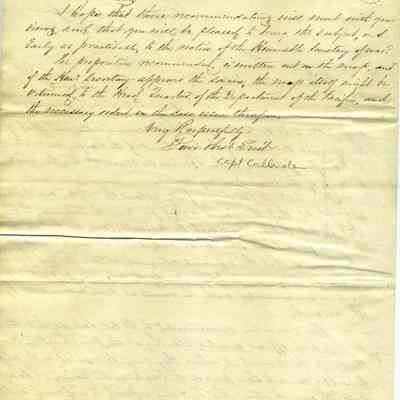 I hope that these recommendations will meet with your
views, and that you will be pleased to bring the subject, as
early as practicable, to the notice of the Honorable Secretary of War.
The proposition recommended, is written out on the map, and
if the Hon. Secretary approves the same, the map itself might be
returned to the Head Quarters of the Department of the Pacific, and
the necessary orders in the case given therefrom.
Very Respectfully
Your Obt Servt
Capt